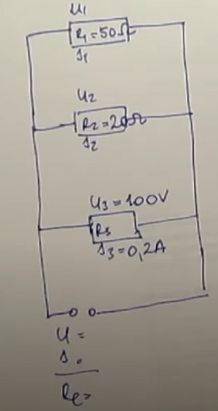 U1
R1=50Ω
I1
U2
R2=20Ω
I2
U3=100V
R3
I3=0,2A
U=
I=
Re=